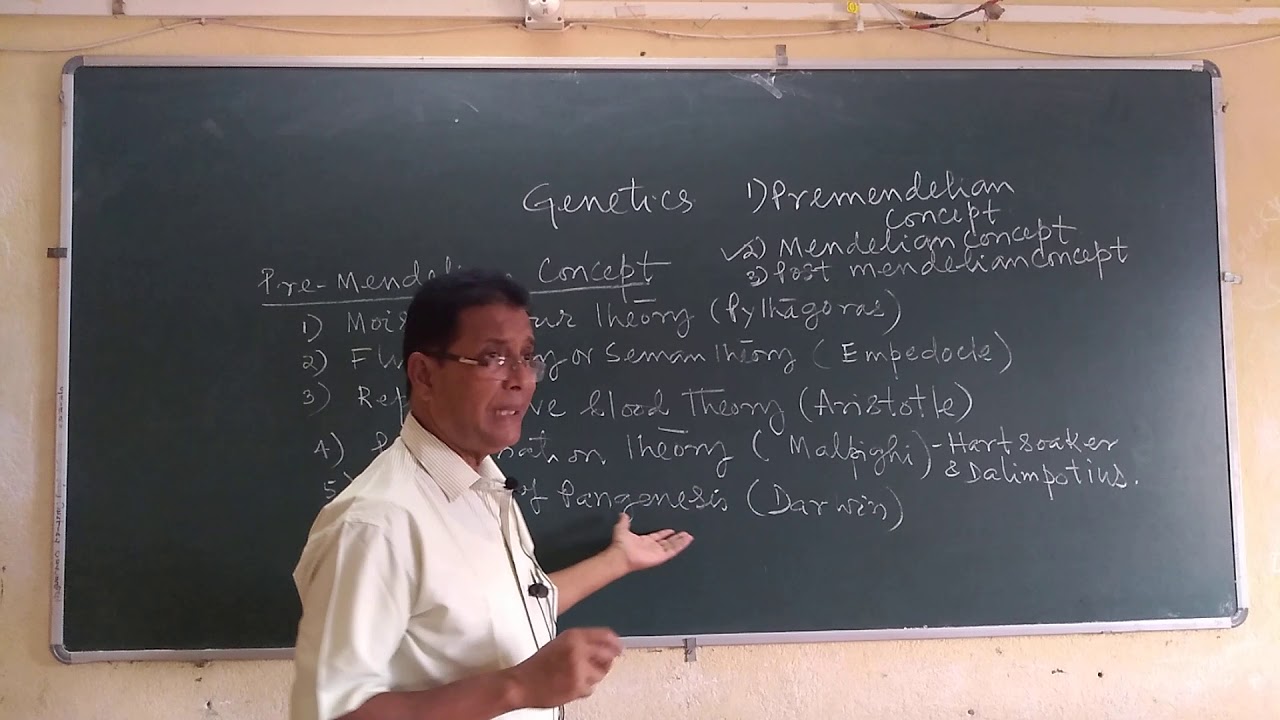 Genetics 1) Premendelian
concept
2) Mendelian concept
3) Post mendelian concept
Pre-Mendel Concept
1) Mois our Theory (Pythagoras)
2) Flu y or Seman Theory (Empedocle)
3) Rep ve blood Theory (Aristotle)
4) ation Theory (Malpighi) - Hartsoaker
& Dalimpotius.
5) of Pangenesis (Darwin)